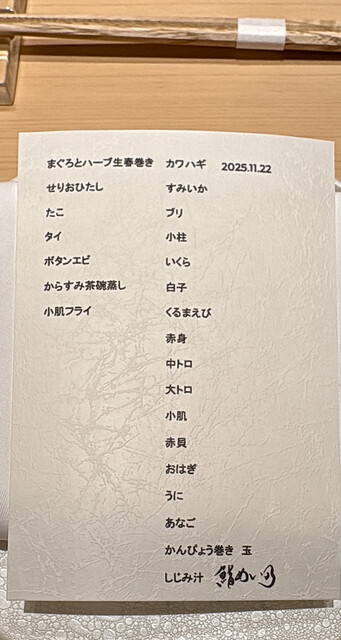 まぐろとハーブ生春巻き
せりおひたし
たこ
タイ
ボタンエビ
からすみ茶碗蒸し
小肌フライ
カワハギ 2025.11.22
すみいか
ブリ
小柱
いくら
白子
くるまえび
赤身
中トロ
大トロ
小肌
赤貝
おはぎ
うに
あなご
かんぴょう巻き 玉
しじみ汁